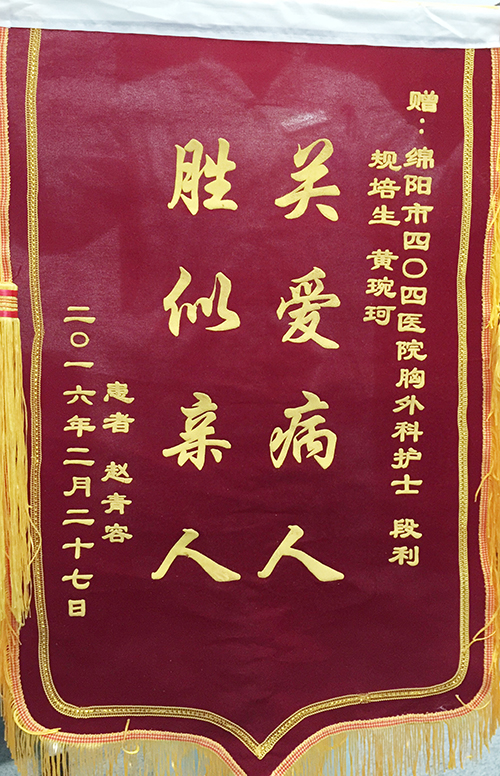 赠：绵阳市四〇四医院胸外科护士 段利
规培生 黄琬珂
关爱病人
胜似亲人
患者 赵青容
二〇一六年二月二十七日